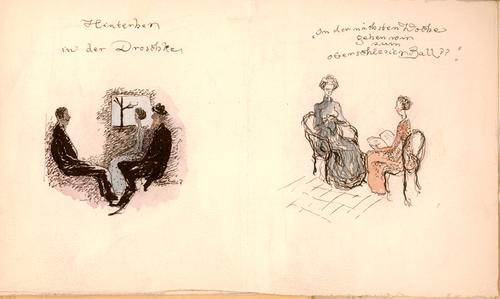 Hinterher
in der Droschke
"In der nächsten Woche
gehen wir
zum
oberschlesier Ball??"